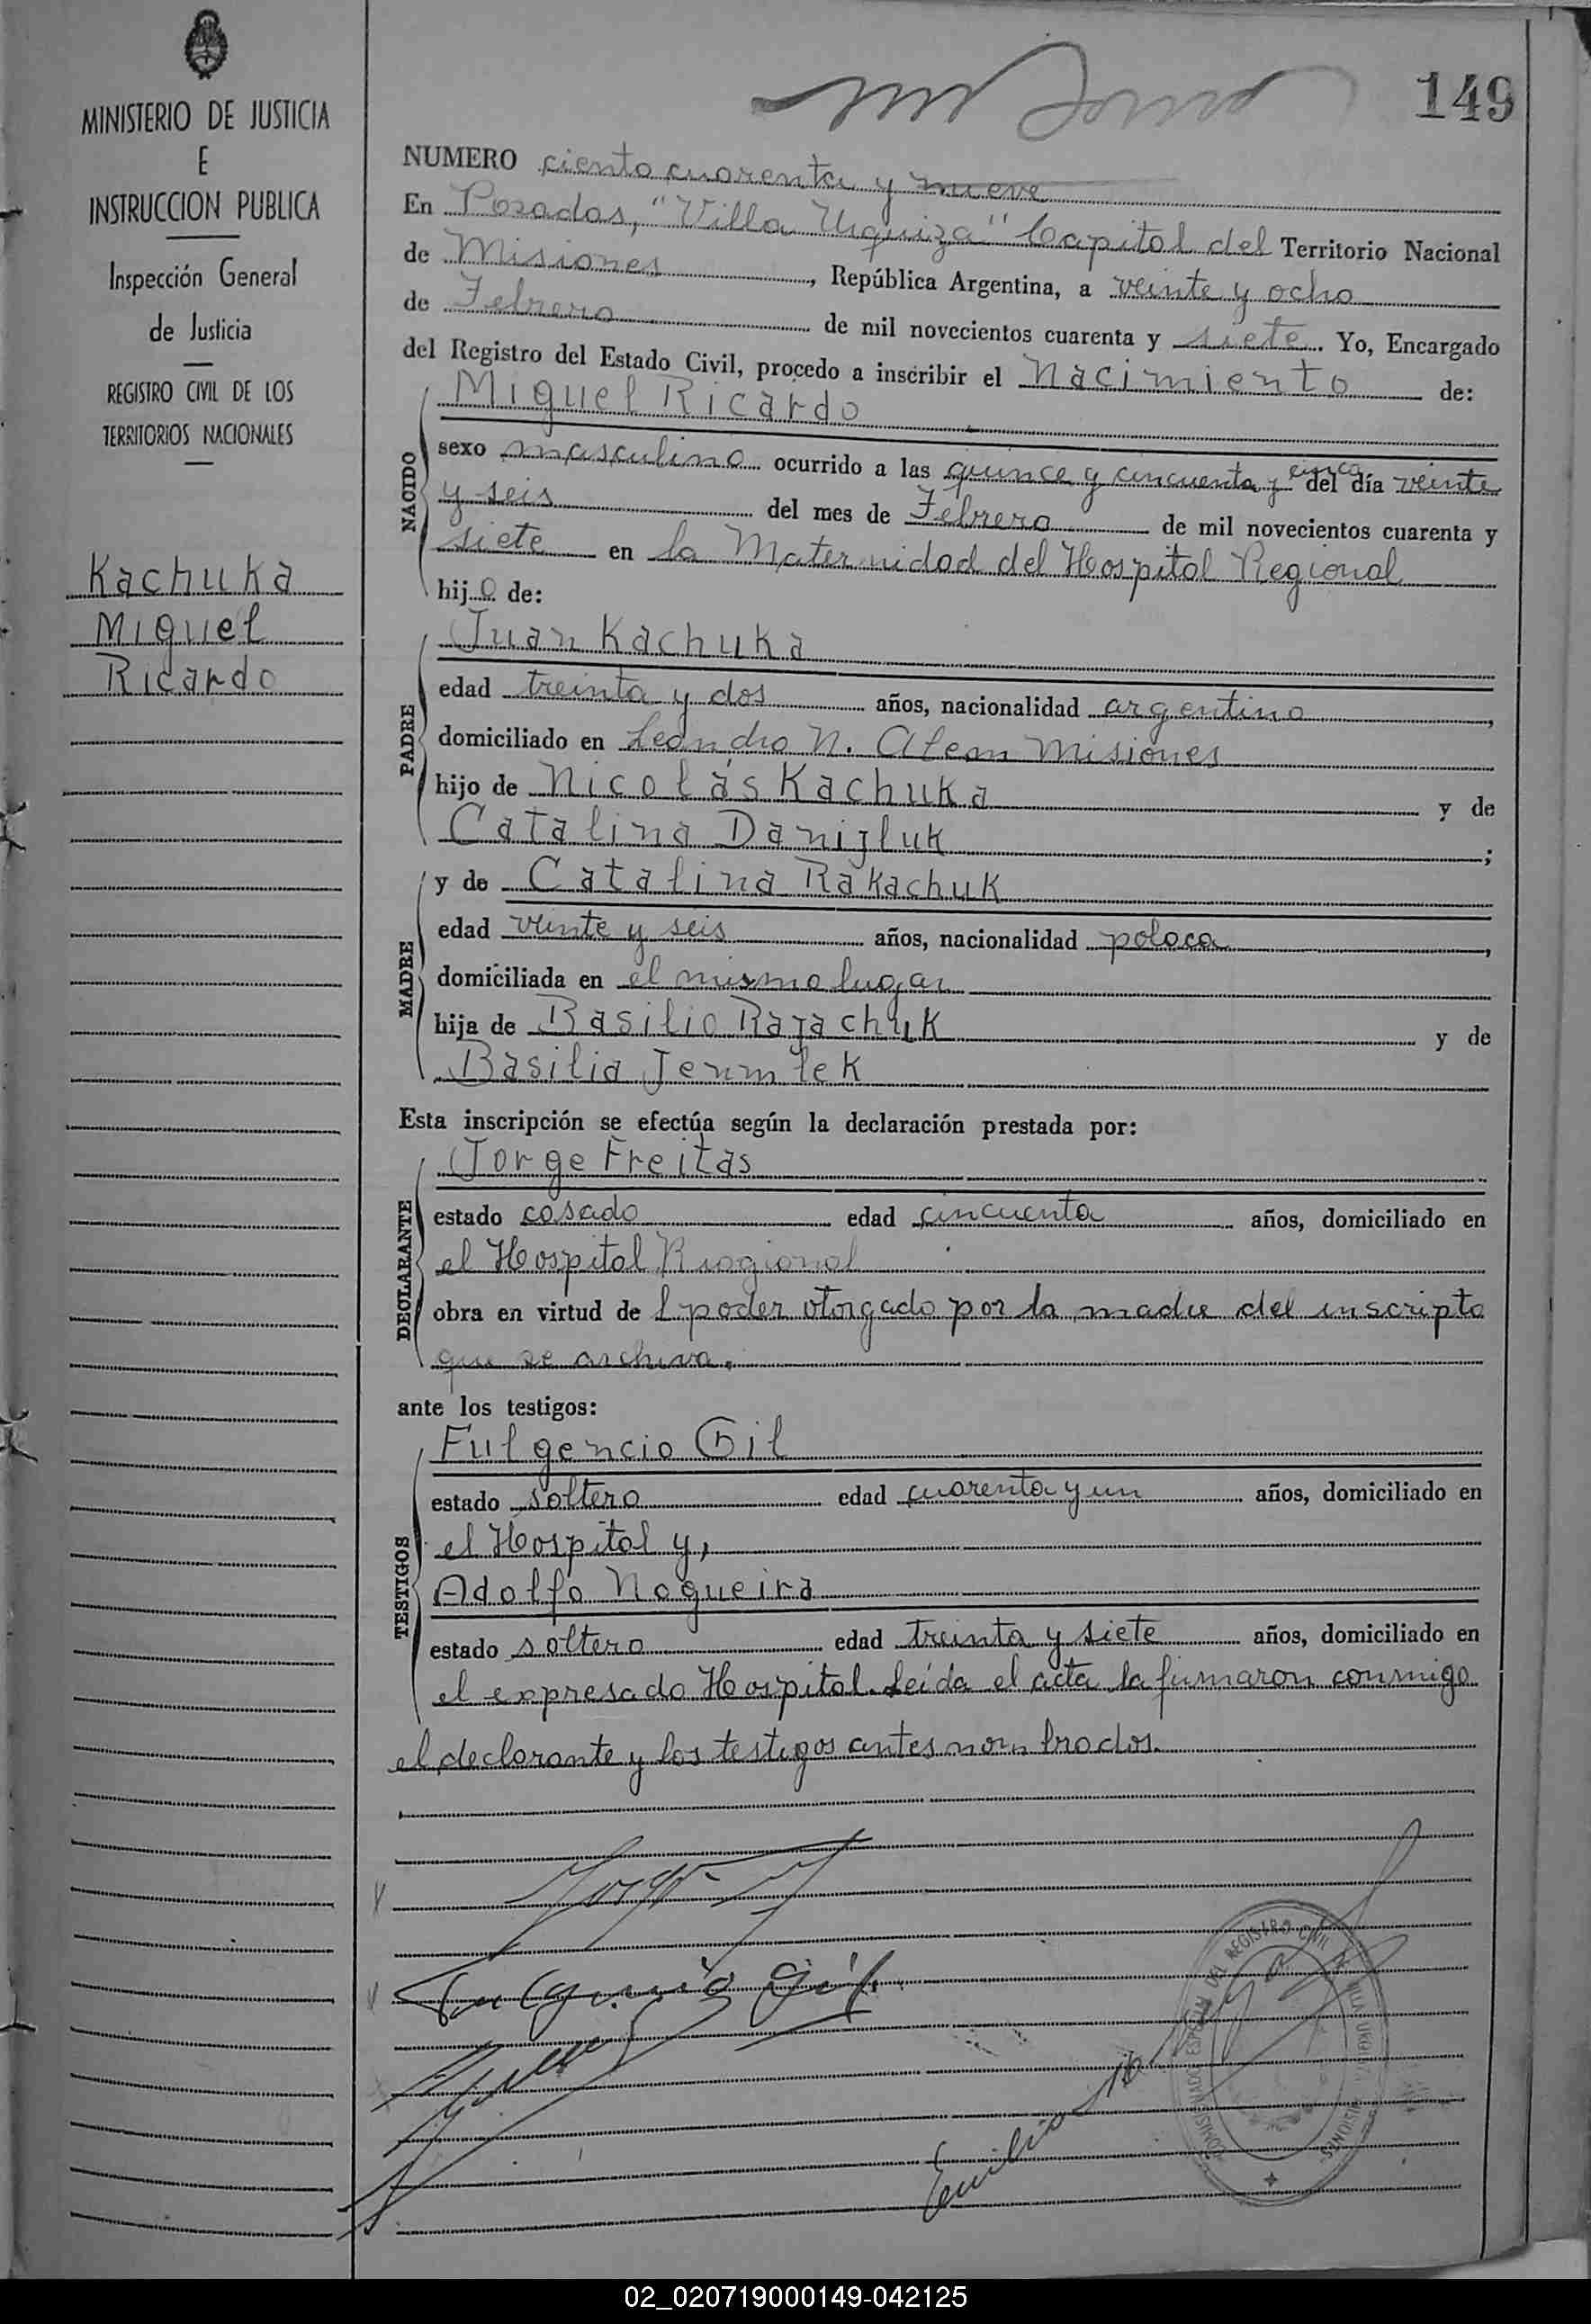 149
MINISTERIO DE JUSTICIA
E
INSTRUCCION PUBLICA
Inspección General
de Justicia
REGISTRO CIVIL DE LOS
TERRITORIOS NACIONALES
Kachuka
Miguel
Ricardo
NUMERO ciento cuarenta y nueve
En Posadas, "Villa Urquiza" Capital del Territorio Nacional
de Misiones, República Argentina, a veinte y ocho
de Febrero de mil novecientos cuarenta y siete. Yo, Encargado
del Registro del Estado Civil, procedo a inscribir el Nacimiento de:
NACIDO
Miguel Ricardo
sexo masculino ocurrido a las quince y cincuenta y cinco del día veinte
y seis del mes de Febrero de mil novecientos cuarenta y
siete en la Maternidad del Hospital Regional
hijo de:
PADRE
Juan Kachuka
edad treinta y dos años, nacionalidad argentino,
domiciliado en Leandro N. Alem Misiones
hijo de Nicolás Kachuka y de
Catalina Danizluk;
MADRE
y de Catalina Rakachuk
edad veinte y seis años, nacionalidad polaca,
domiciliada en el mismo lugar
hija de Basilio Razachuk y de
Basilia
Esta inscripción se efectúa según la declaración prestada por:
DECLARANTE
Jorge Freitas
estado casado edad cincuenta años, domiciliado en
el Hospital Regional
obra en virtud de l poder otorgado por la madre del inscripto
que se archiva.
ante los testigos:
TESTIGOS
Fulgencio Gil
estado soltero edad cuarenta y un años, domiciliado en
el Hospital y,
Adolfo Nogueira
estado soltero edad treinta y siete años, domiciliado en
el expresado Hospital. Leída el acta la firmaron conmigo
el declarante y los testigos antes nombrados.
Fulgencio Gil
Emilio
COMISIONADO ESPECIAL DEL REGISTRO CIVIL DE VILLA URQUIZA MISIONES
02_020719000149-042125